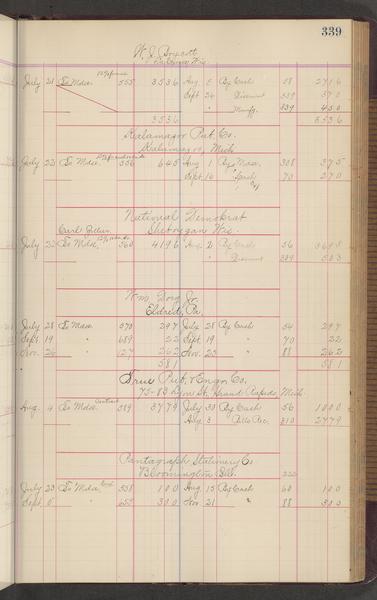 339
July 21 To Mdse. 555 3536 Aug 5 By Cash 58 2716
Sept 24 Discount 339 370
" 339 450
3536 3536
Kalamazoo Pub. Co.
Kalamazoo, Mich
July 22 To Mdse. 556 645 Aug 1 By Mdse. 308 375
Sept. 14 " Cash 73 270
National Demokrat
Sheboygan Wis.
July 22 To Mdse. 560 4196 Aug. 2 By Cash 56
" Discount 339 503
Jr.
Eldred, Pa.
July 28 To Mdse 570 297 July 28 By Cash 54 297
Sept. 19 " 689 22 Sept. 19 " 70 22
Nov. 26 " 127 262 Nov. 23 " 88 262
581 581
True Pub. & Engr. Co.
75-83 Lyon St. Grand Rapids, Mich.
Aug. 4 To Mdse. Contract 589 3779 July 30 By Cash 56 1000
Aug. 3 Bills Rec. 310 2779
Pantagraph Stationery Co
Bloomington Ill.
July 23 To Mdse. 558 100 Aug. 15 By Cash 60 100
Sept. " 655 300 Nov. 21 " 88 300